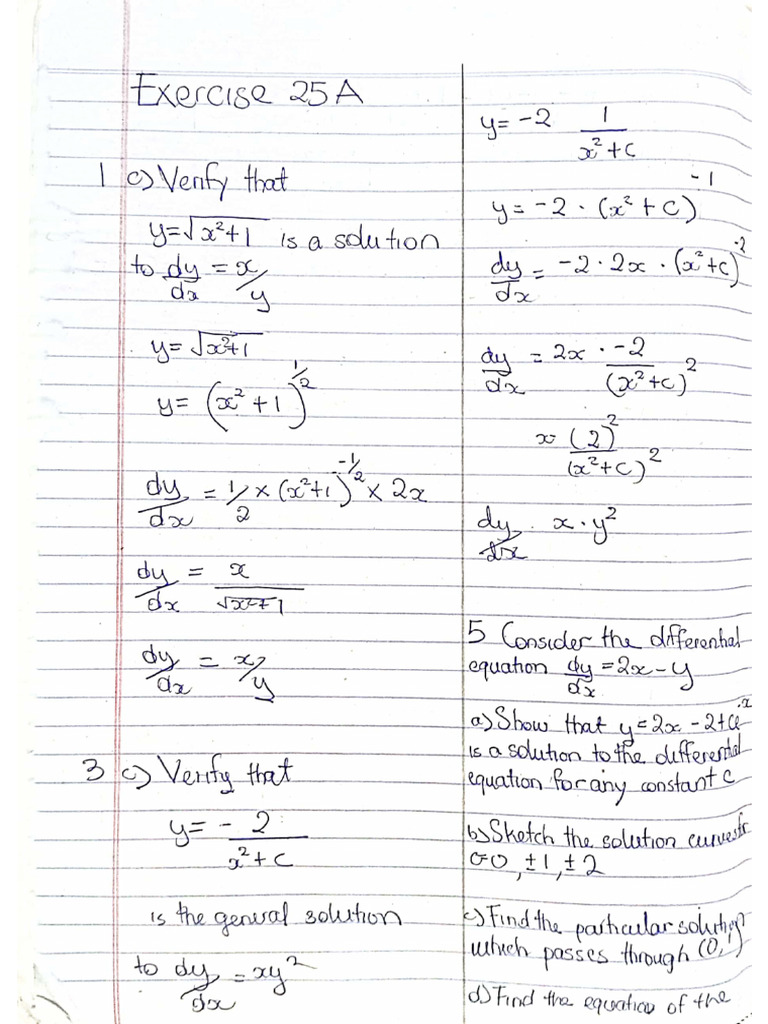 Exercise 25A
1 c) Verify that
y = √(x²+1) is a solution
to dy/dx = x/y
y = √(x²+1)
y = (x² + 1)^1/2
dy/dx = 1/2 × (x²+1)^-1/2 × 2x
dy/dx = x/√(x²+1)
dy/dx = x/y
3 c) Verify that
y = - 2/(x² + c)
is the general solution
to dy/dx = xy²
y = -2 1/(x² + c)
y = -2 · (x² + c)^-1
dy/dx = -2 · 2x · (x² + c)^-2
dy/dx = 2x · -2/(x² + c)²
(2)^2/(x² + c)²
dy/dx x · y²
5 Consider the differential
equation dy/dx = 2x - y
a) Show that y = 2x - 2 + ce^-x
is a solution to the differential
equation for any constant c
b) Sketch the solution curves for
c=0, ±1, ±2
c) Find the particular solution
which passes through (0,1)
d) Find the equation of the